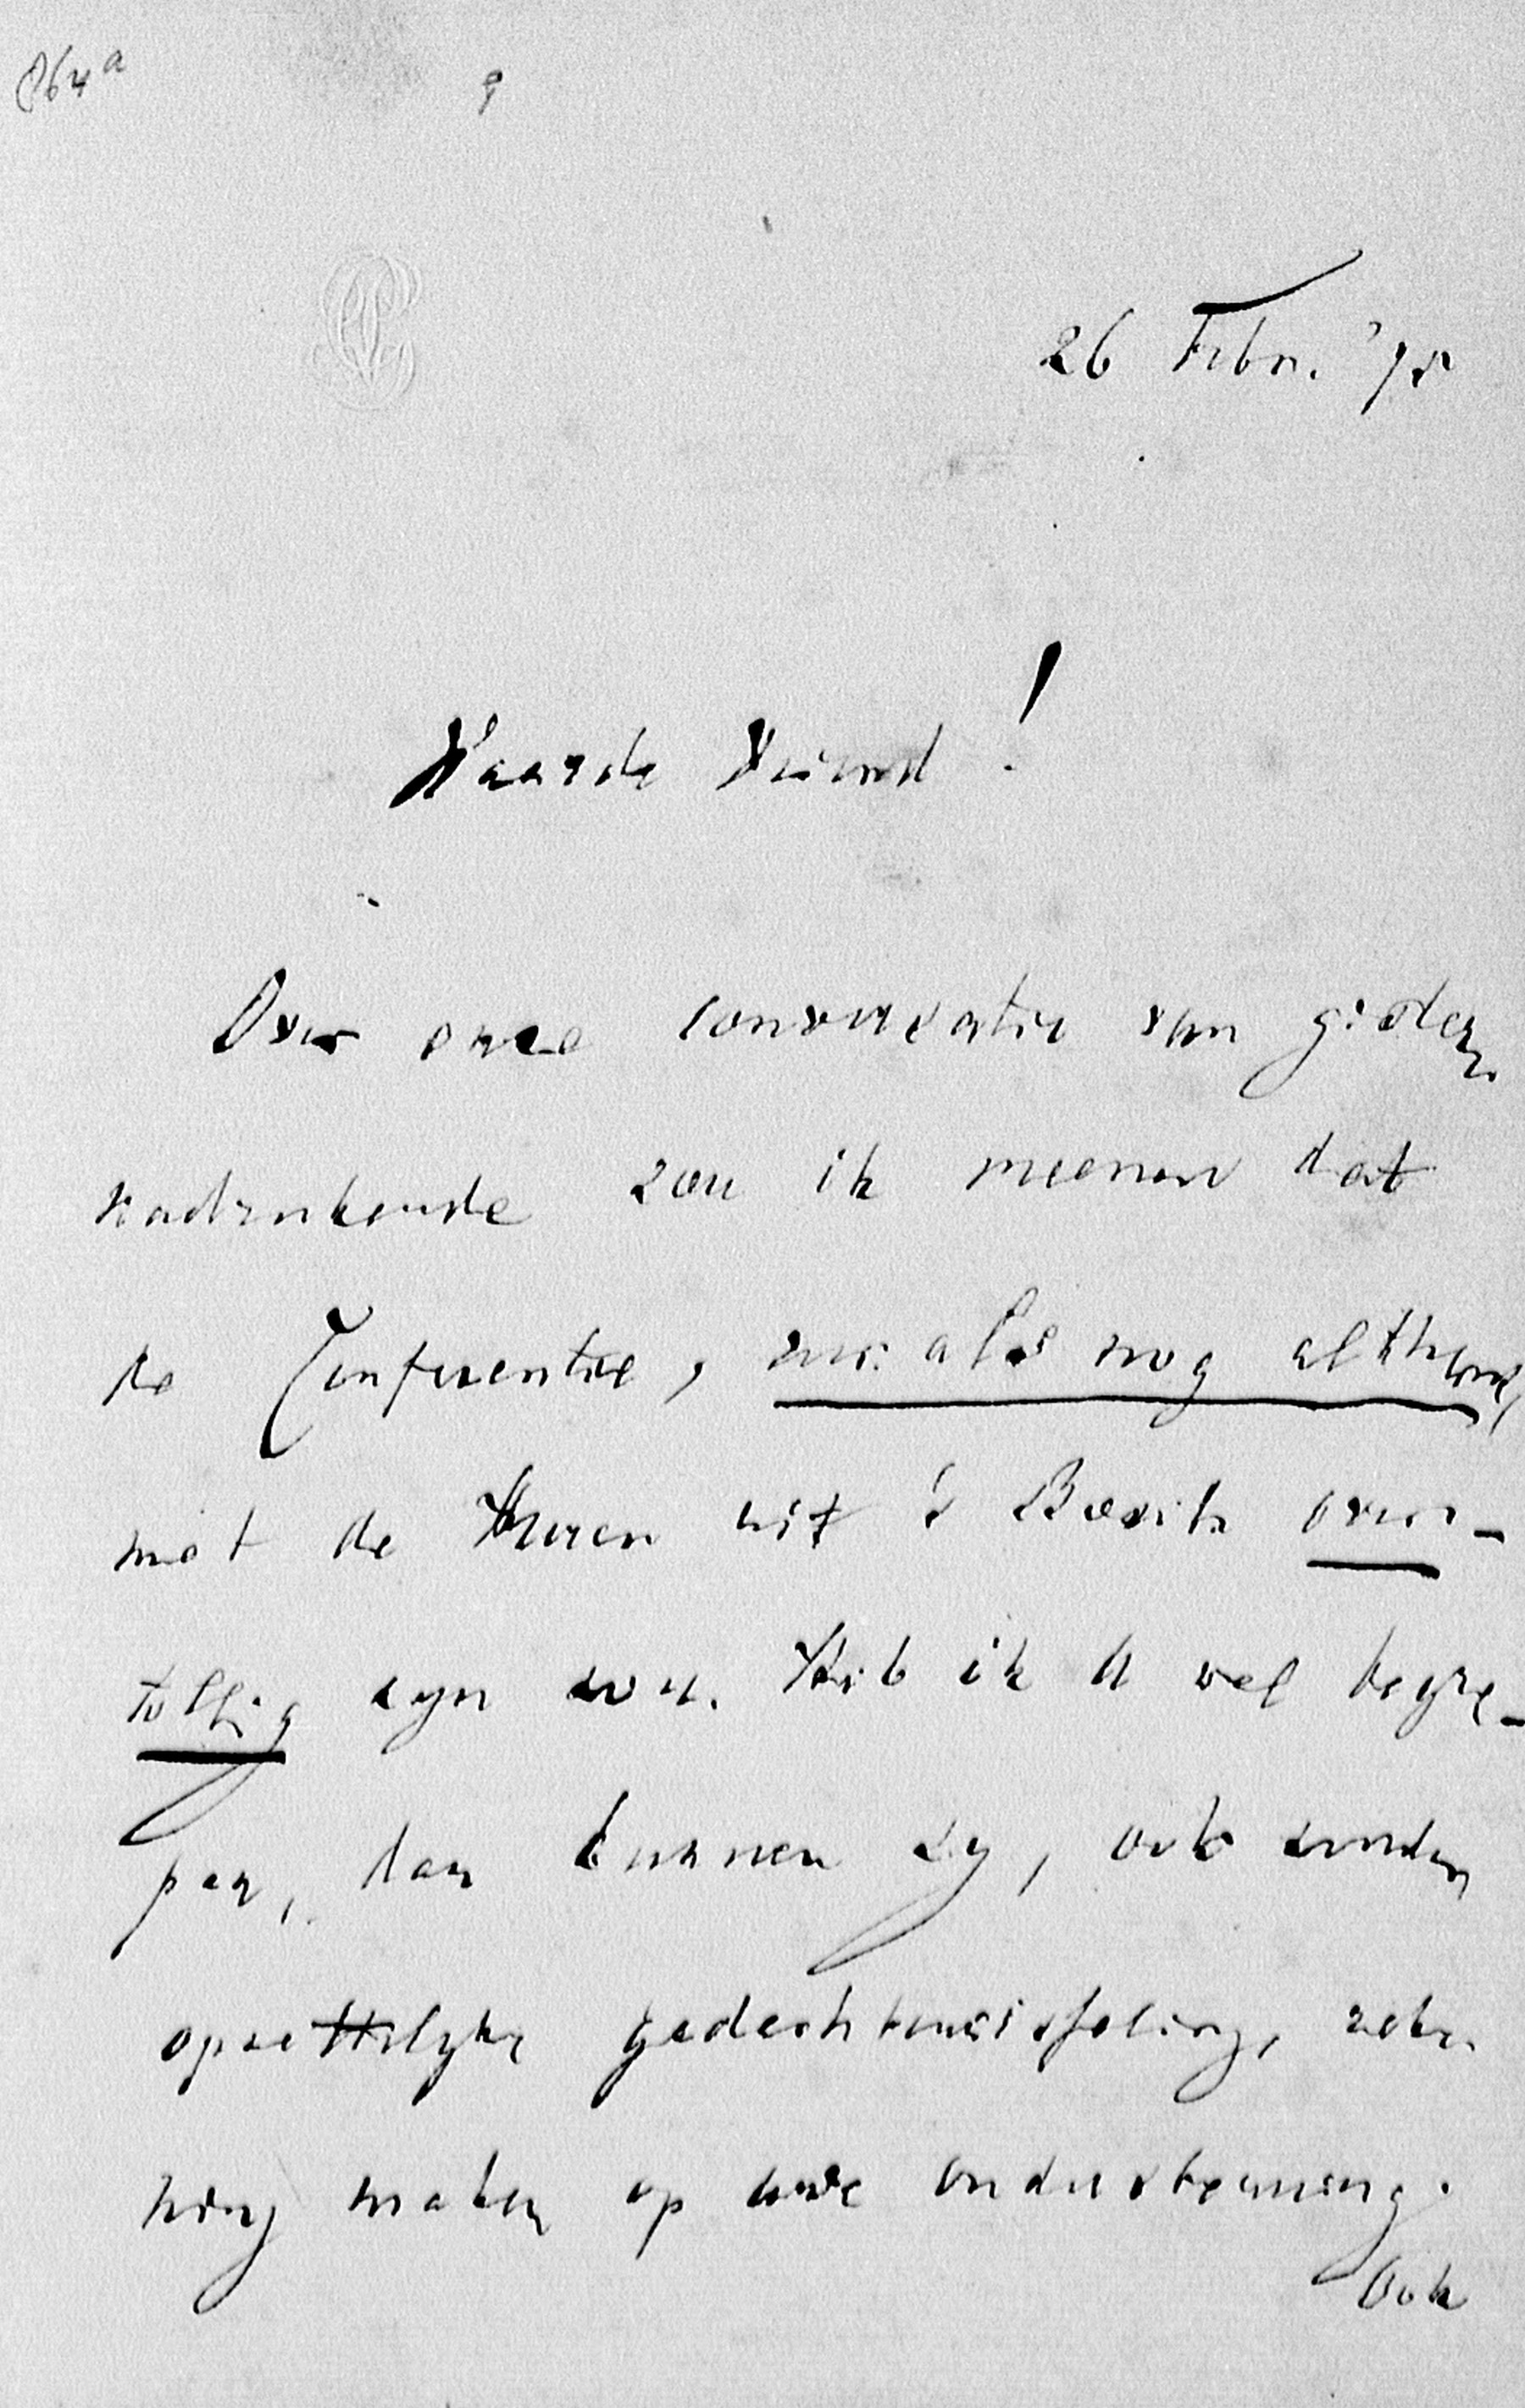 864a 9
26 Febr. '95
Waarde Vriend!
Over onze conversatie van gisteren
nadenkende zou ik meenen dat
de Conferentie, voor als nog althans,
met de Heeren uit 's Bosch over-
tollig zyn zou. Heb ik U wel begre-
pen, dan kunnen zy, ook zonder
opzettelyke gedachtenwisseling, reke-
ning maken op uwe ondersteuning.
Ook